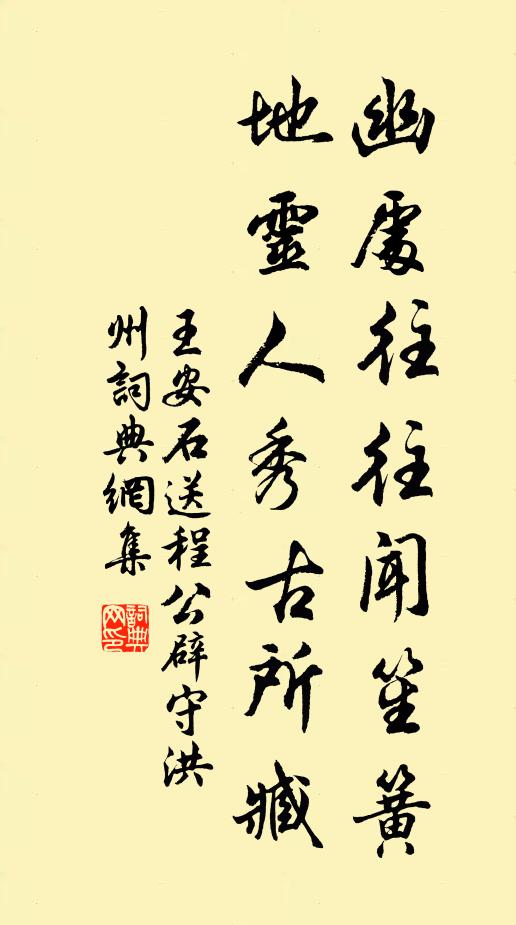 幽處往往聞笙簧
地靈人秀古所臧
王安石送程公辟守洪
州詞典網集
詞典網印